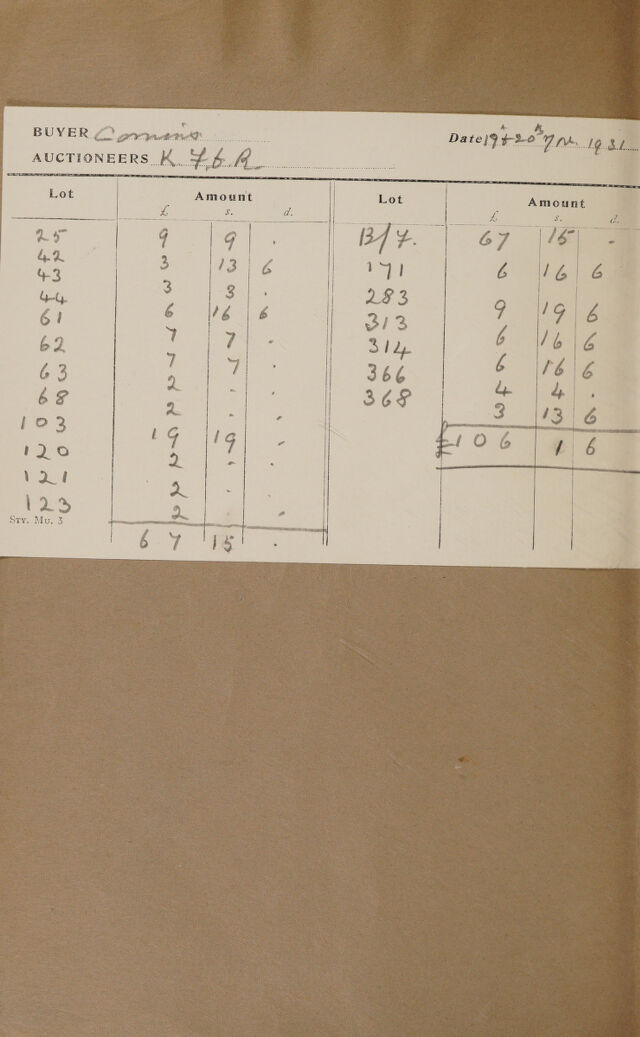 BUYER Comins
Date 19th & 20th Nov. 1931
AUCTIONEERS K F & R
Lot Amount Lot Amount
£ s. d. £ s. d.
25 9 9 .
42 3 13 6
43 3 3 .
44 6 16 6
61 7 7 .
62 7 7 .
63 2 - .
68 2 . -
103 19 19 -
120 2 - .
121 2 - .
123 2 -
Sty. Mu. 3
67 15 .
B/F. 67 15 -
171 6 16 6
283 9 19 6
313 6 16 6
314 6 16 6
366 4 4 .
368 3 13 6
£106 1 6